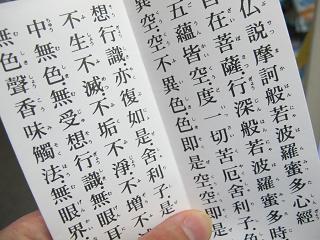 仏説摩訶般若波羅蜜多心經
自在菩薩行深般若波羅蜜多時
五蘊皆空度一切苦厄舍利子
異空空不異色色即是空空即是
想行識亦復如是舍利子是
不生不滅不垢不淨不增不
中無色無受想行識無眼耳
無色聲香味觸法無眼界